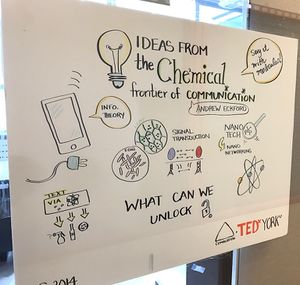 IDEAS FROM
the Chemical
frontier of COMMUNICATION
ANDREW ECKFORD
say it
with
molecules!
INFO.
THEORY
SIGNAL
TRANSDUCTION
NANO
TECH
NANO
NETWORKING
TEXT
VIA
WHAT CAN WE
UNLOCK ?
TEDx YORKU
2014